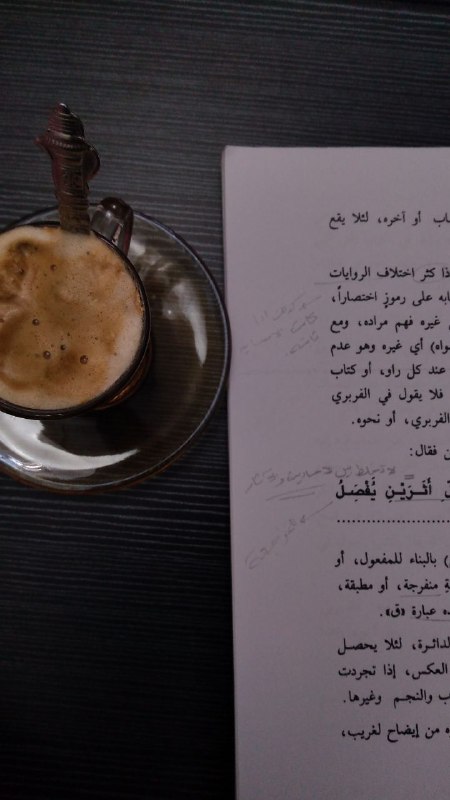 ـاب أو آخره، لئلا يقع
ذا كثر اختلاف الروايات
ـابه على رموزٍ اختصاراً،
غيره فهم مراده، ومع
ـواه) أي غيره وهو عدم
عند كل راو، أو كتاب
فلا يقول في الفربري
لفربري، أو نحوه.
ن فقال:
أَثَرَيْنِ يُفْصَلُ
) بالبناء للمفعول، أو
ـةٍ منفرجة، أو مطبقة،
ـذه عبارة «ق».
لدائرة، لئلا يحصل
العكس، إذا تجردت
ـب والنجم وغيرها.
ـه من إيضاح لغريب،